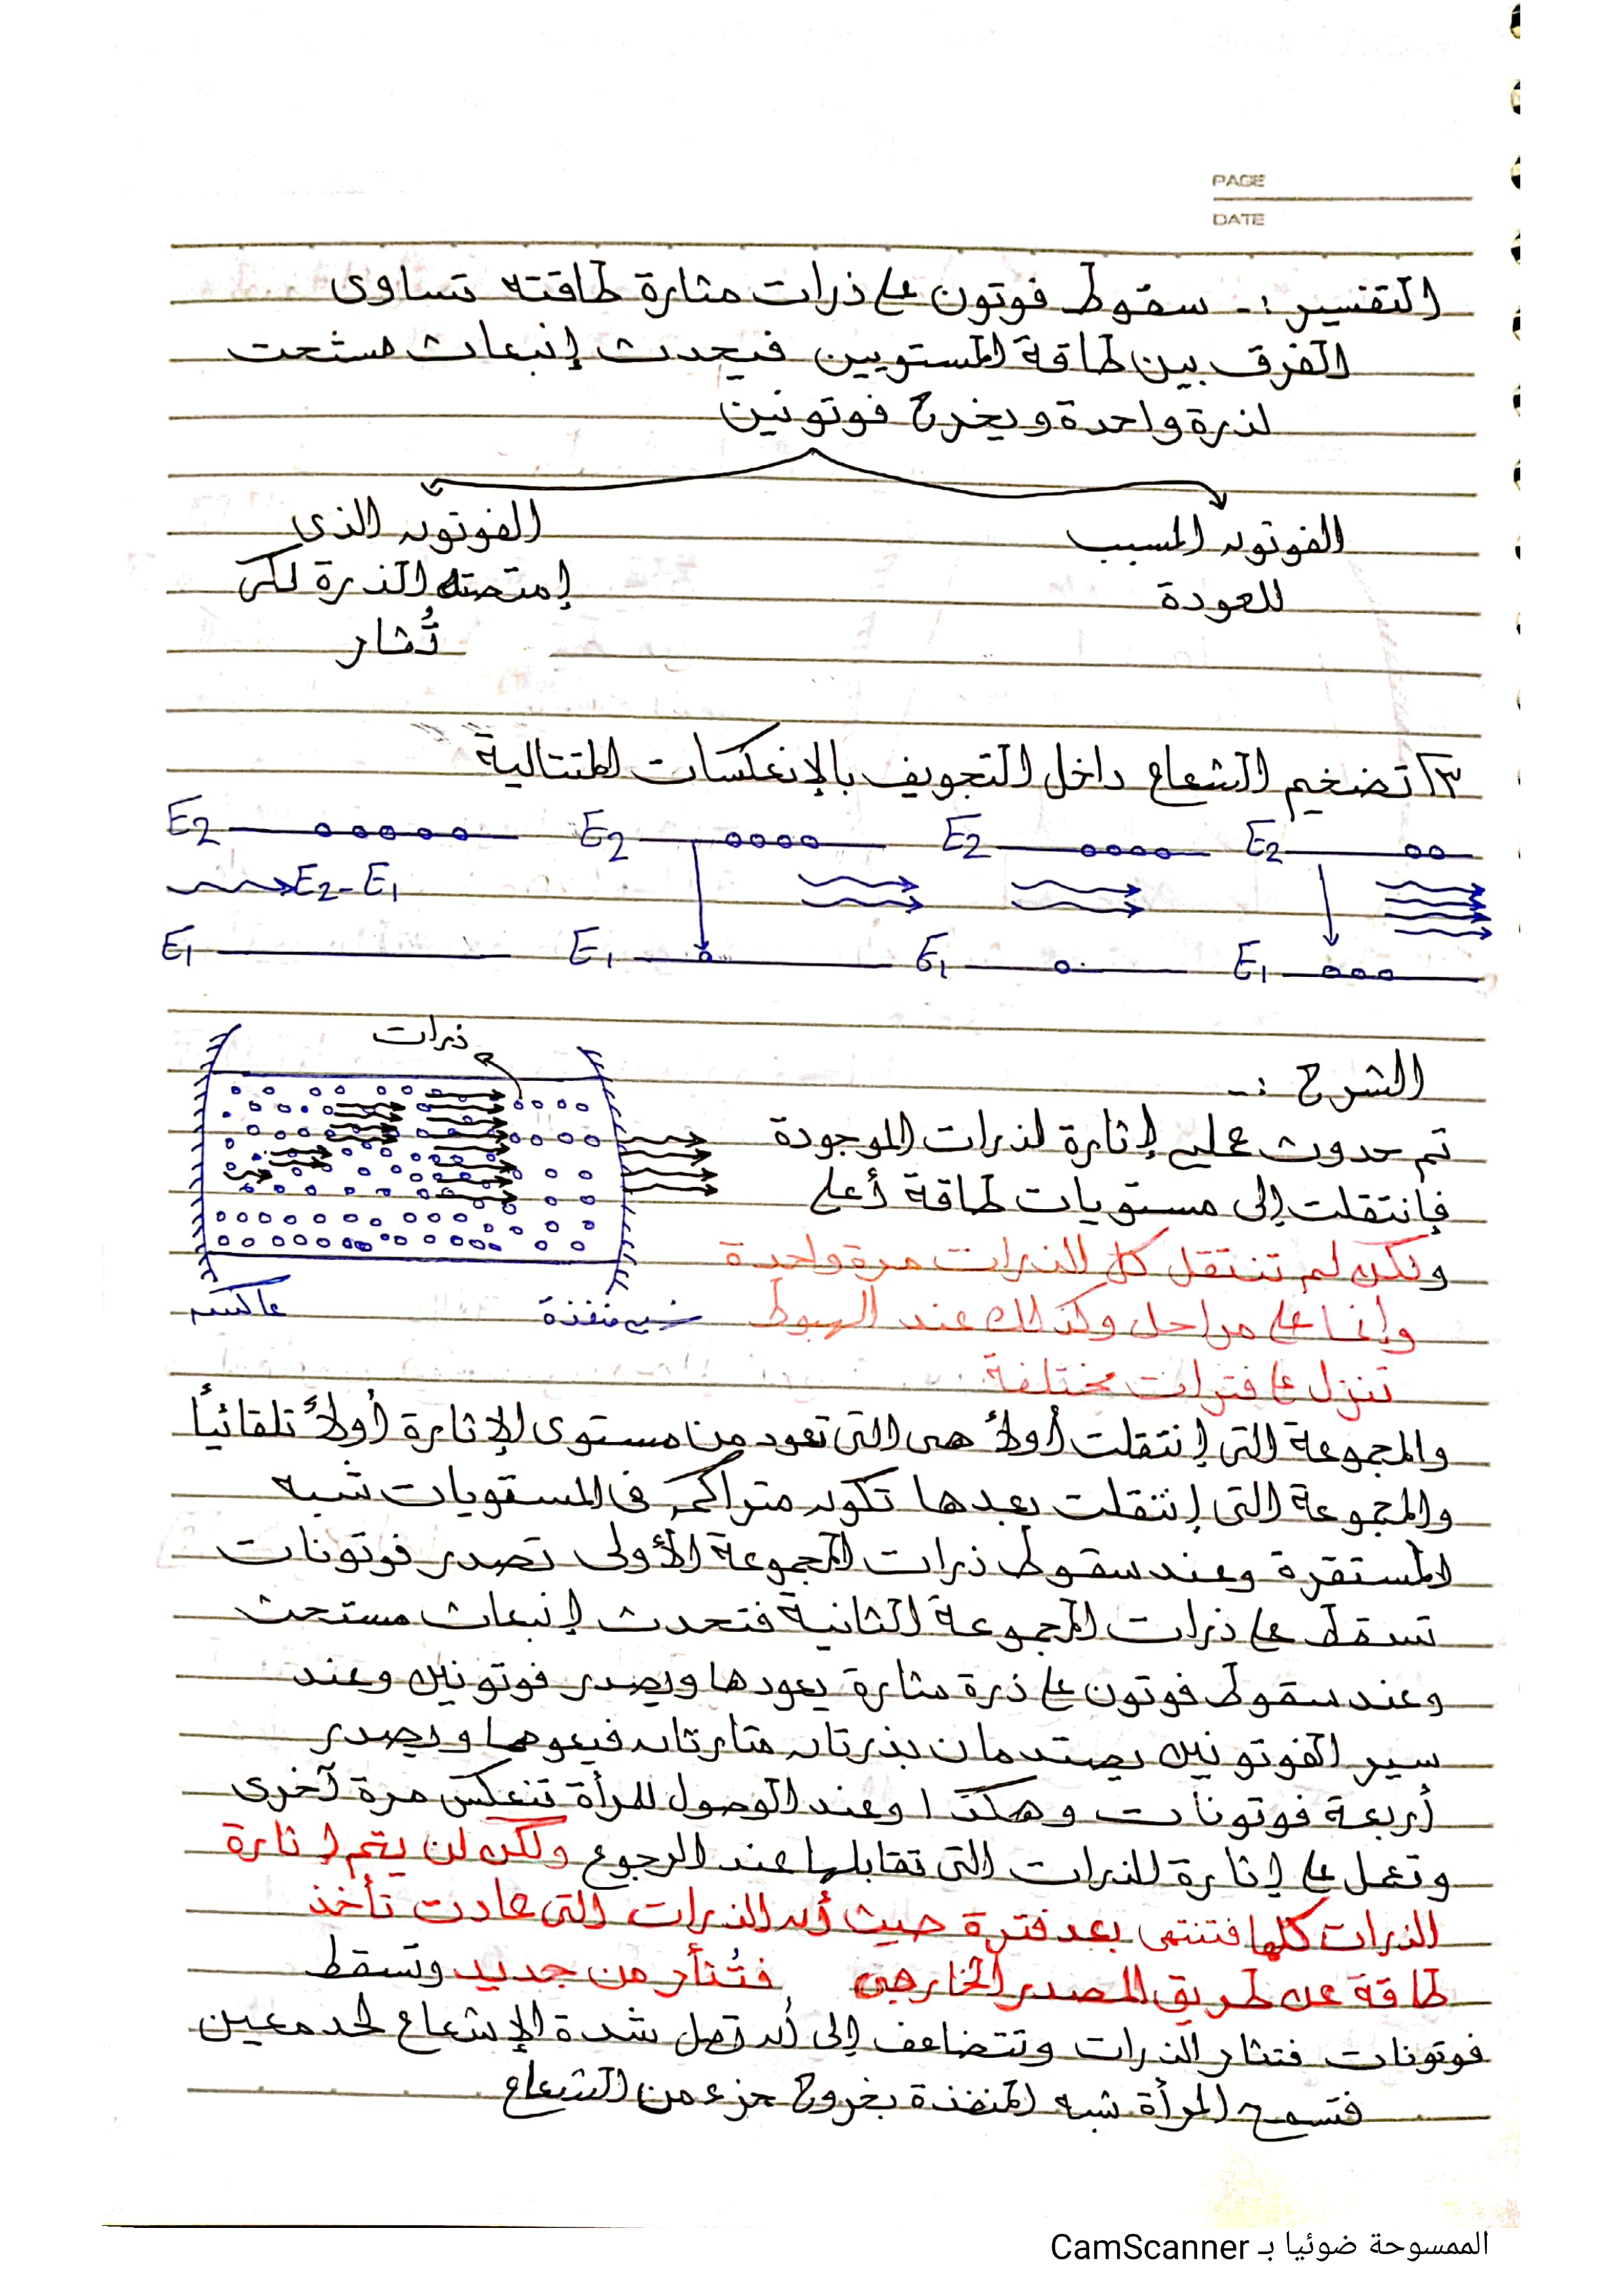 PAGE
DATE
التفسير :- سقوط فوتون على ذرات مثارة طاقته تساوى
الفرق بين طاقة المستويين فيحدث إنبعاث مستحث
لذرة واحدة ويخرج فوتونين
الفوتون المسبب
للعودة
الفوتون الذى
إمتصته الذرة لكى
تُثار
٣) تضخيم الشعاع داخل التجويف بالإنعكسات المتتالية
E2 E2 E2 E2
E2-E1
E1 E1 E1 E1
ذرات
عاكسه
شبه منفذة
الشرح :-
تم حدوث عمليه إثارة لذرات الموجودة
فإنتقلت إلى مستويات طاقة أعلى
ولكن لم تنتقل كل الذرات مرة واحدة
وإنما على مراحل وكذلك عند الهبوط
تنزل على فترات مختلفة
والمجموعة التى إنتقلت أولاً هى التى تعود من مستوى الإثارة أولاً تلقائياً
والمجموعة التى إنتقلت بعدها تكون متراكمه فى المستويات شبه
المستقرة وعند سقوط ذرات المجموعة الأولى تصدر فوتونات
تسقط على ذرات المجموعة الثانية فتحدث إنبعاث مستحث
وعند سقوط فوتون على ذرة مثارة يعودها ويصدر فوتونين وعند
سير الفوتونين يصتدمان بذرتان مثارتان فيعوهما ويصدر
أربعة فوتونات وهكذا وعند الوصول للمرأة تنعكس مرة آخرى
وتعمل على إثارة للذرات التى تقابلها عند الرجوع ولكن لن يتم إثارة
الذرات كلها فتنتهى بعد فترة حيث أن الذرات التى عادت تأخذ
طاقة عن طريق المصدر الخارجى فتُثأر من جديد وتسقط
فوتونات فتثار الذرات وتتضاعف إلى أن تصل شدة الإشعاع لحد معين
فتسمح المرأة شبه المنفذة بخروج جزء من الشعاع
الممسوحة ضوئيا بـ CamScanner